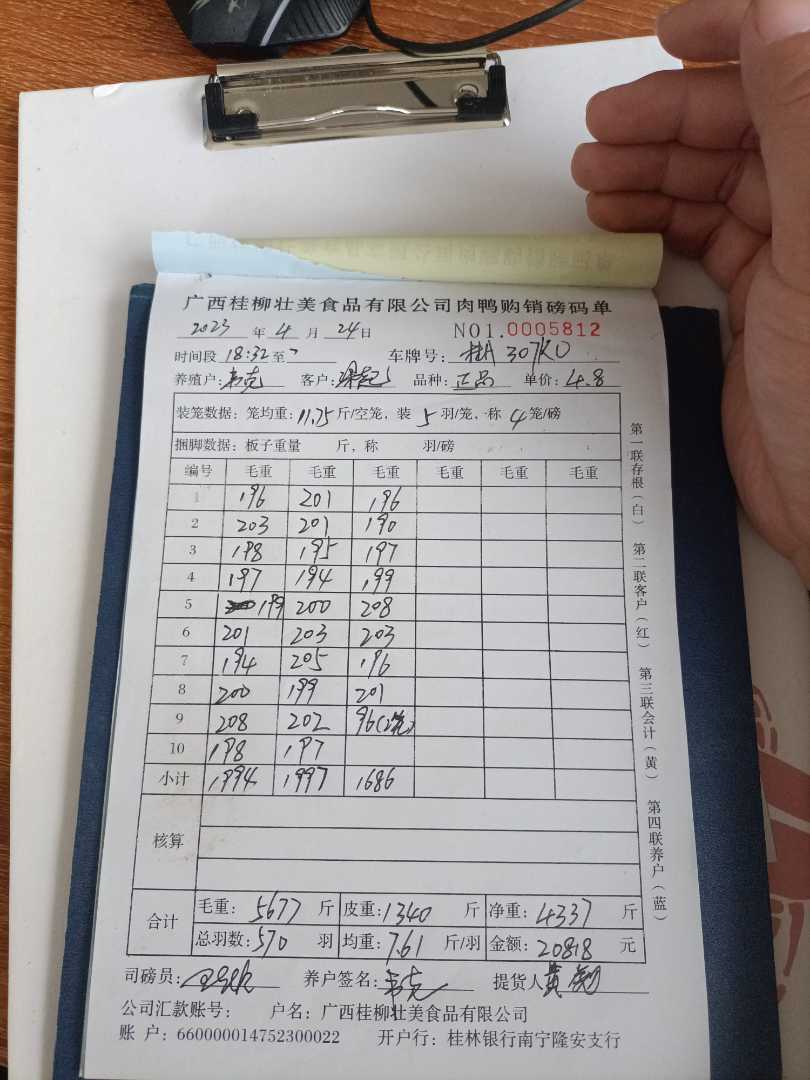 广西桂柳壮美食品有限公司肉鸭购销磅码单
2023 年 4 月 24 日 NO1.0005812
时间段 18:32 至 车牌号: 桂A 307K0
养殖户: 韦克 客户: 品种: 正品 单价: 4.8
装笼数据: 笼均重: 11.75 斤/空笼, 装 5 羽/笼, 称 4 笼/磅
捆脚数据: 板子重量 斤, 称 羽/磅
编号 毛重 毛重 毛重 毛重 毛重 毛重
1 196 201 196
2 203 201 190
3 198 195 197
4 197 194 199
5 199 200 208
6 201 203 203
7 194 205 196
8 200 199 201
9 208 202 96(2笼)
10 198 197
小计 1994 1997 1686
核算
合计 毛重: 5677 斤 皮重: 1340 斤 净重: 4337 斤
总羽数: 570 羽 均重: 7.61 斤/羽 金额: 20818 元
司磅员: 养户签名: 韦克 提货人 黄
公司汇款账号: 户名: 广西桂柳壮美食品有限公司
账 户: 660000014752300022 开户行: 桂林银行南宁隆安支行
第一联存根(白) 第二联客户(红) 第三联会计(黄) 第四联养户(蓝)